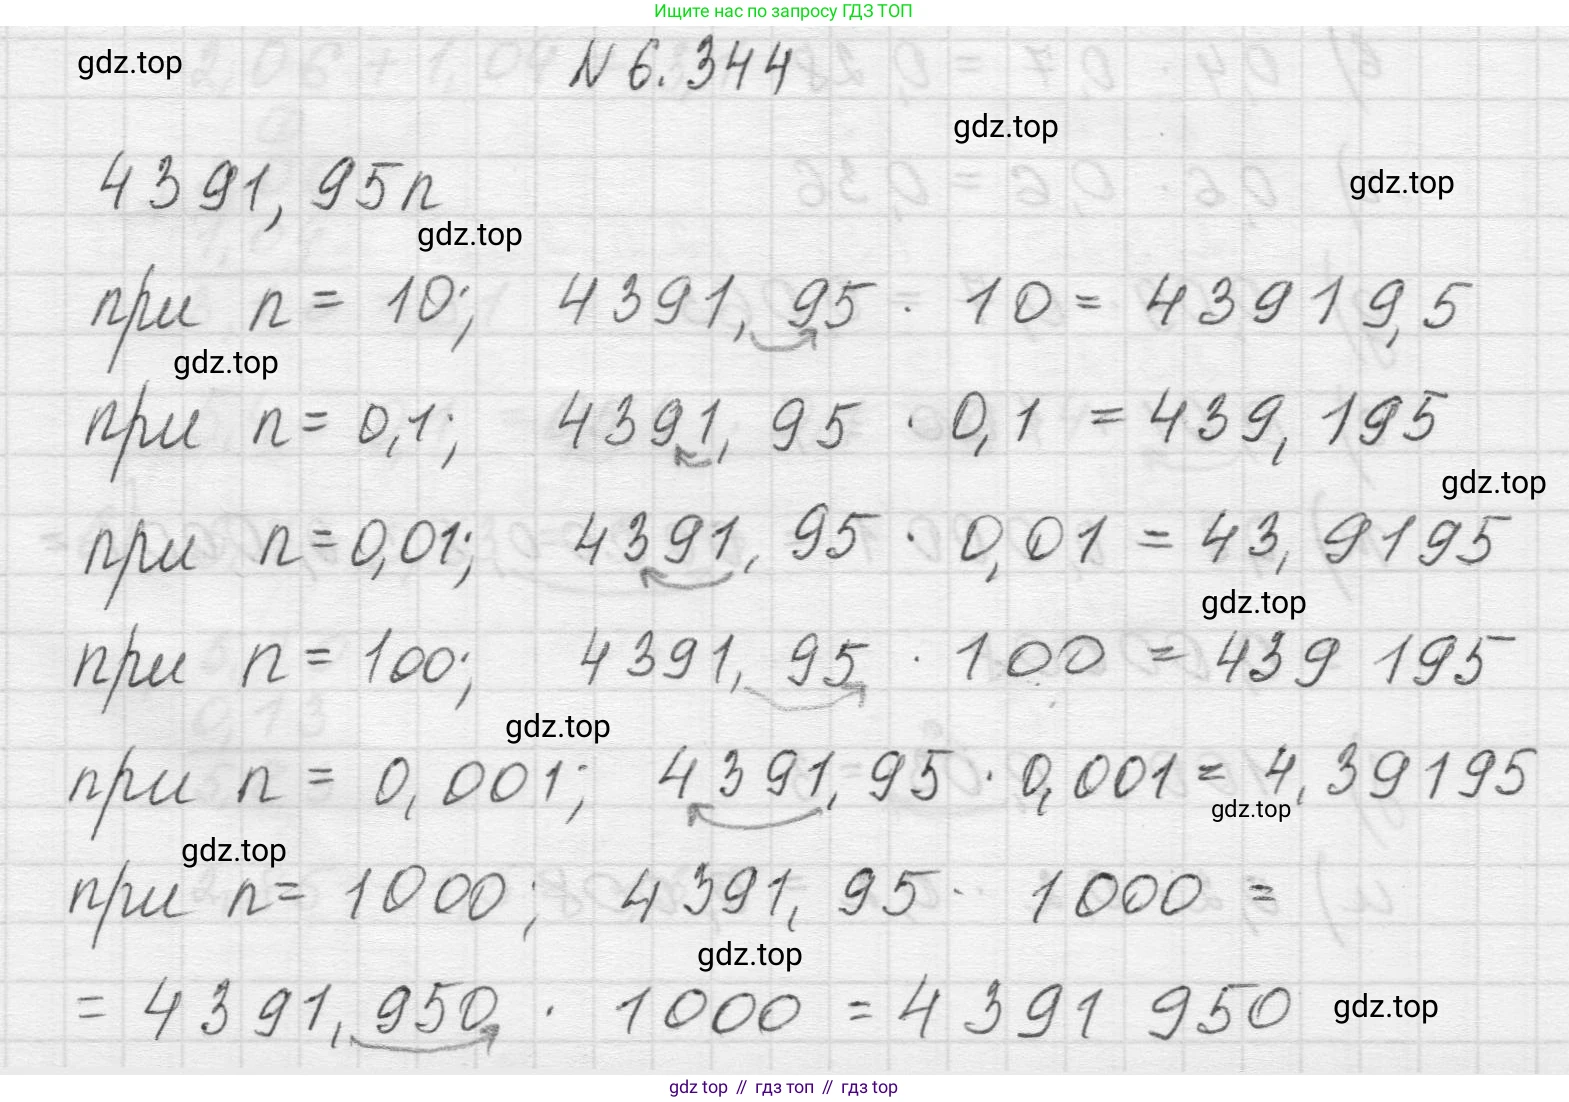 Ищите нас по запросу ГДЗ ТОП
gdz.top
N 6.344
gdz.top
4391,95n
gdz.top
gdz.top
при n = 10; 4391,95 · 10 = 43919,5
gdz.top
при n = 0,1; 4391,95 · 0,1 = 439,195
gdz.top
при n = 0,01; 4391,95 · 0,01 = 43,9195
gdz.top
при n = 100; 4391,95 · 100 = 439 195
gdz.top
при n = 0,001; 4391,95 · 0,001 = 4,39195
gdz.top
gdz.top
при n = 1000; 4391,95 · 1000 =
gdz.top
= 4391,950 · 1000 = 4391 950
gdz.top
gdz top // гдз топ // гдз top